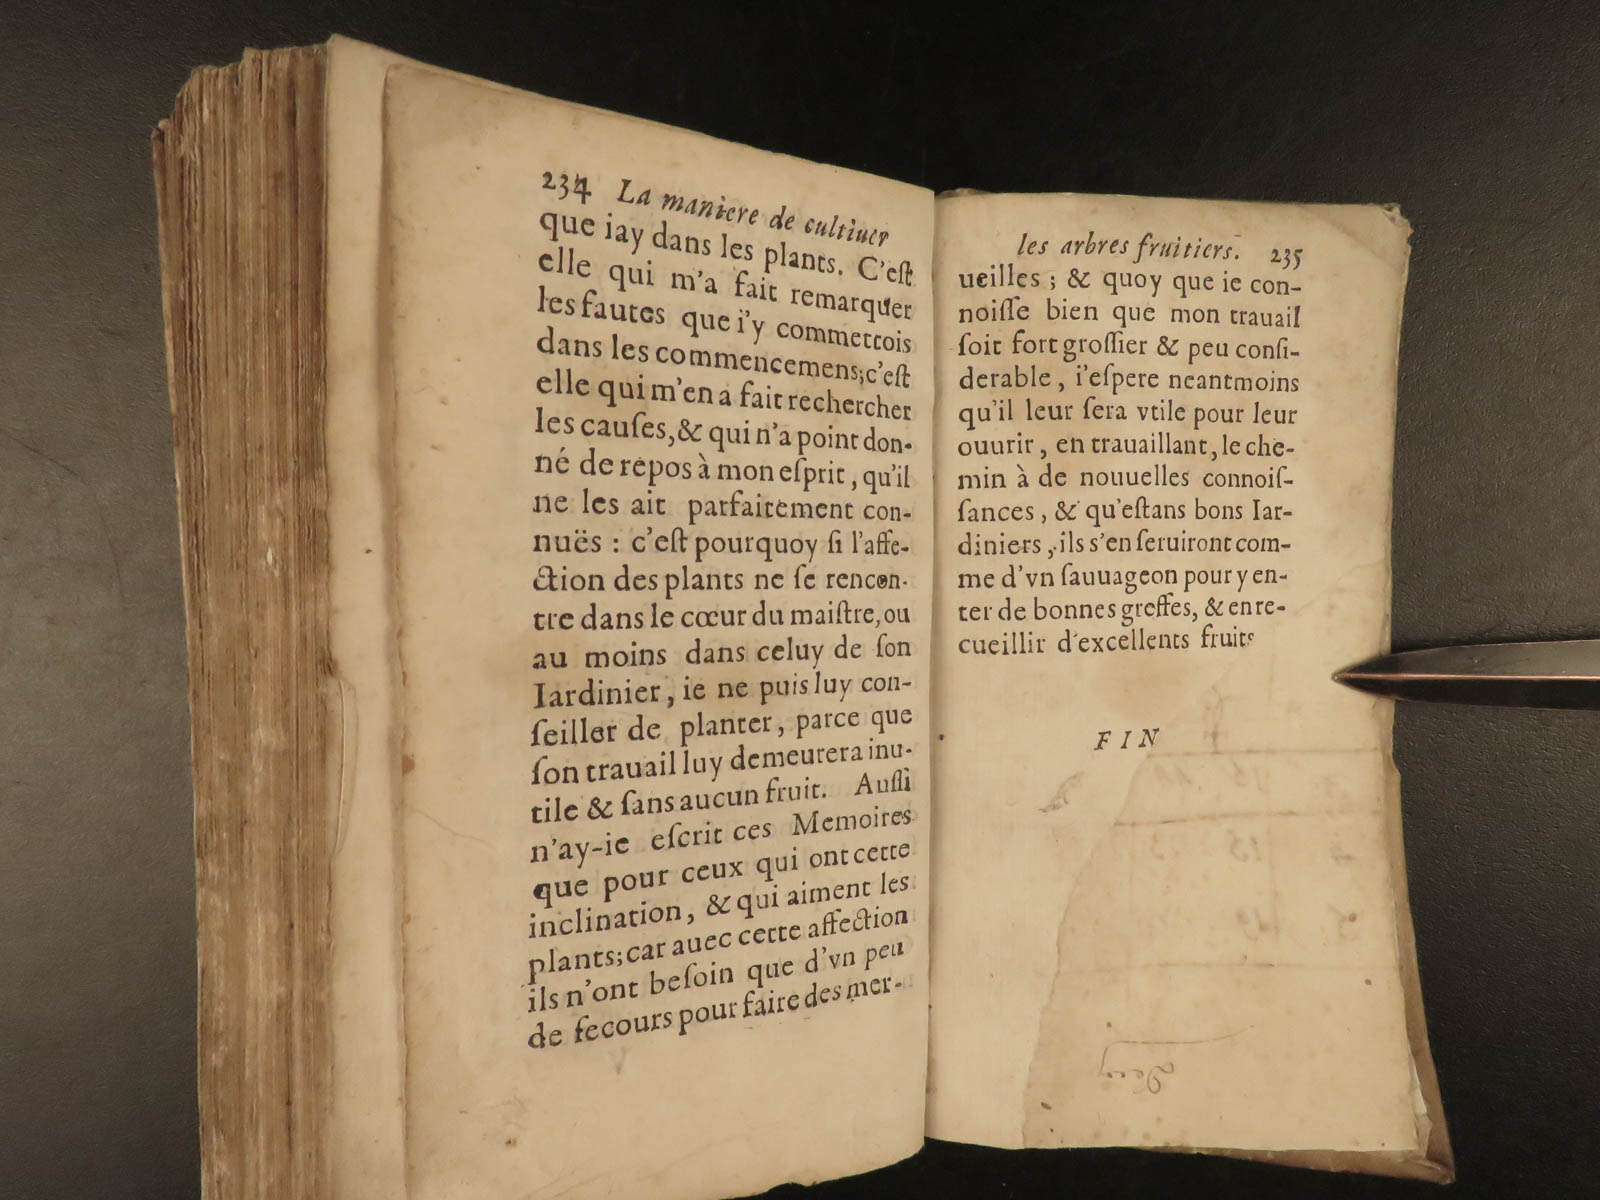 234 La maniere de cultiuer
que iay dans les plants. C'eſt
elle qui m'a fait remarquer
les fautes que i'y commettois
dans les commencemens; c'eſt
elle qui m'en a fait rechercher
les cauſes, & qui n'a point don-
né de repos à mon eſprit, qu'il
ne les ait parfaitement con-
nuës : c'eſt pourquoy ſi l'affe-
ction des plants ne ſe rencon-
tre dans le cœur du maiſtre, ou
au moins dans celuy de ſon
Iardinier, ie ne puis luy con-
ſeiller de planter, parce que
ſon trauail luy demeurera inu-
tile & ſans aucun fruit. Auſſi
n'ay-ie eſcrit ces Memoires
que pour ceux qui ont cette
inclination, & qui aiment les
plants; car auec cette affection
ils n'ont beſoin que d'vn peu
de ſecours pour faire des mer-
les arbres fruitiers. 235
ueilles ; & quoy que ie con-
noiſſe bien que mon trauail
ſoit fort groſſier & peu conſi-
derable, i'eſpere neantmoins
qu'il leur ſera vtile pour leur
ouurir, en trauaillant, le che-
min à de nouuelles connoiſ-
ſances, & qu'eſtans bons Iar-
diniers, ils s'en ſeruiront com-
me d'vn ſauuageon pour y en-
ter de bonnes greffes, & en re-
cueillir d'excellents fruits
FIN